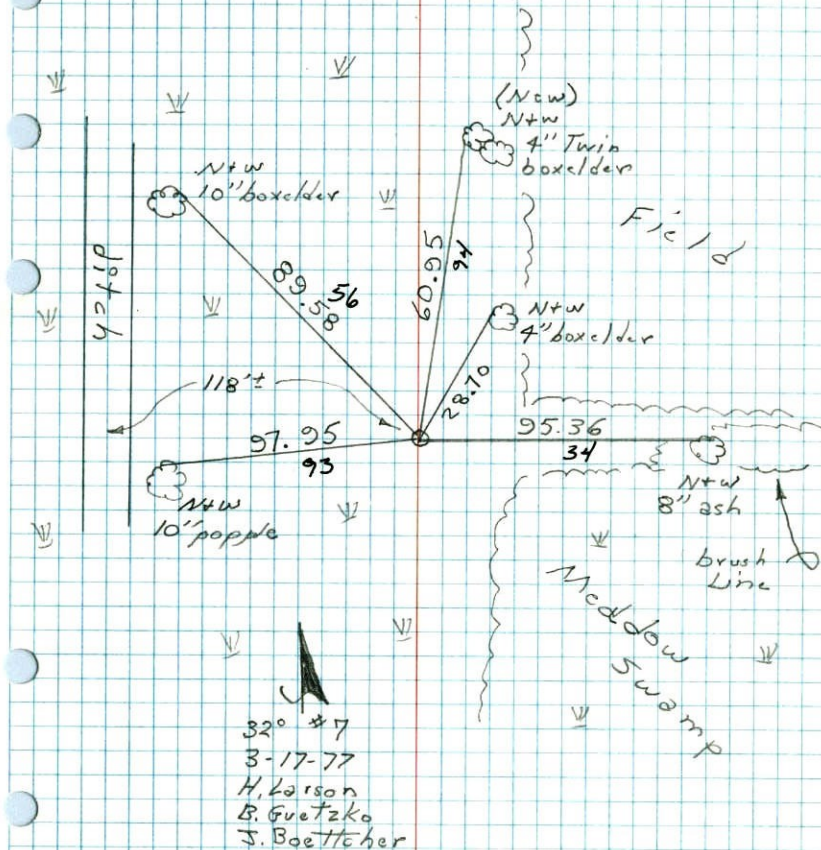 (New)
N+W
4" Twin
boxelder
N+W
10" boxelder
Field
ditch
60.95
94
89.58
56
N+W
4" boxelder
28.70
118'±
97.95
93
95.36
34
N+W
10" popple
N+W
8" ash
brush
Line
Meddow
Swamp
32° #7
3-17-77
H. Larson
B. Guetzko
J. Boettcher